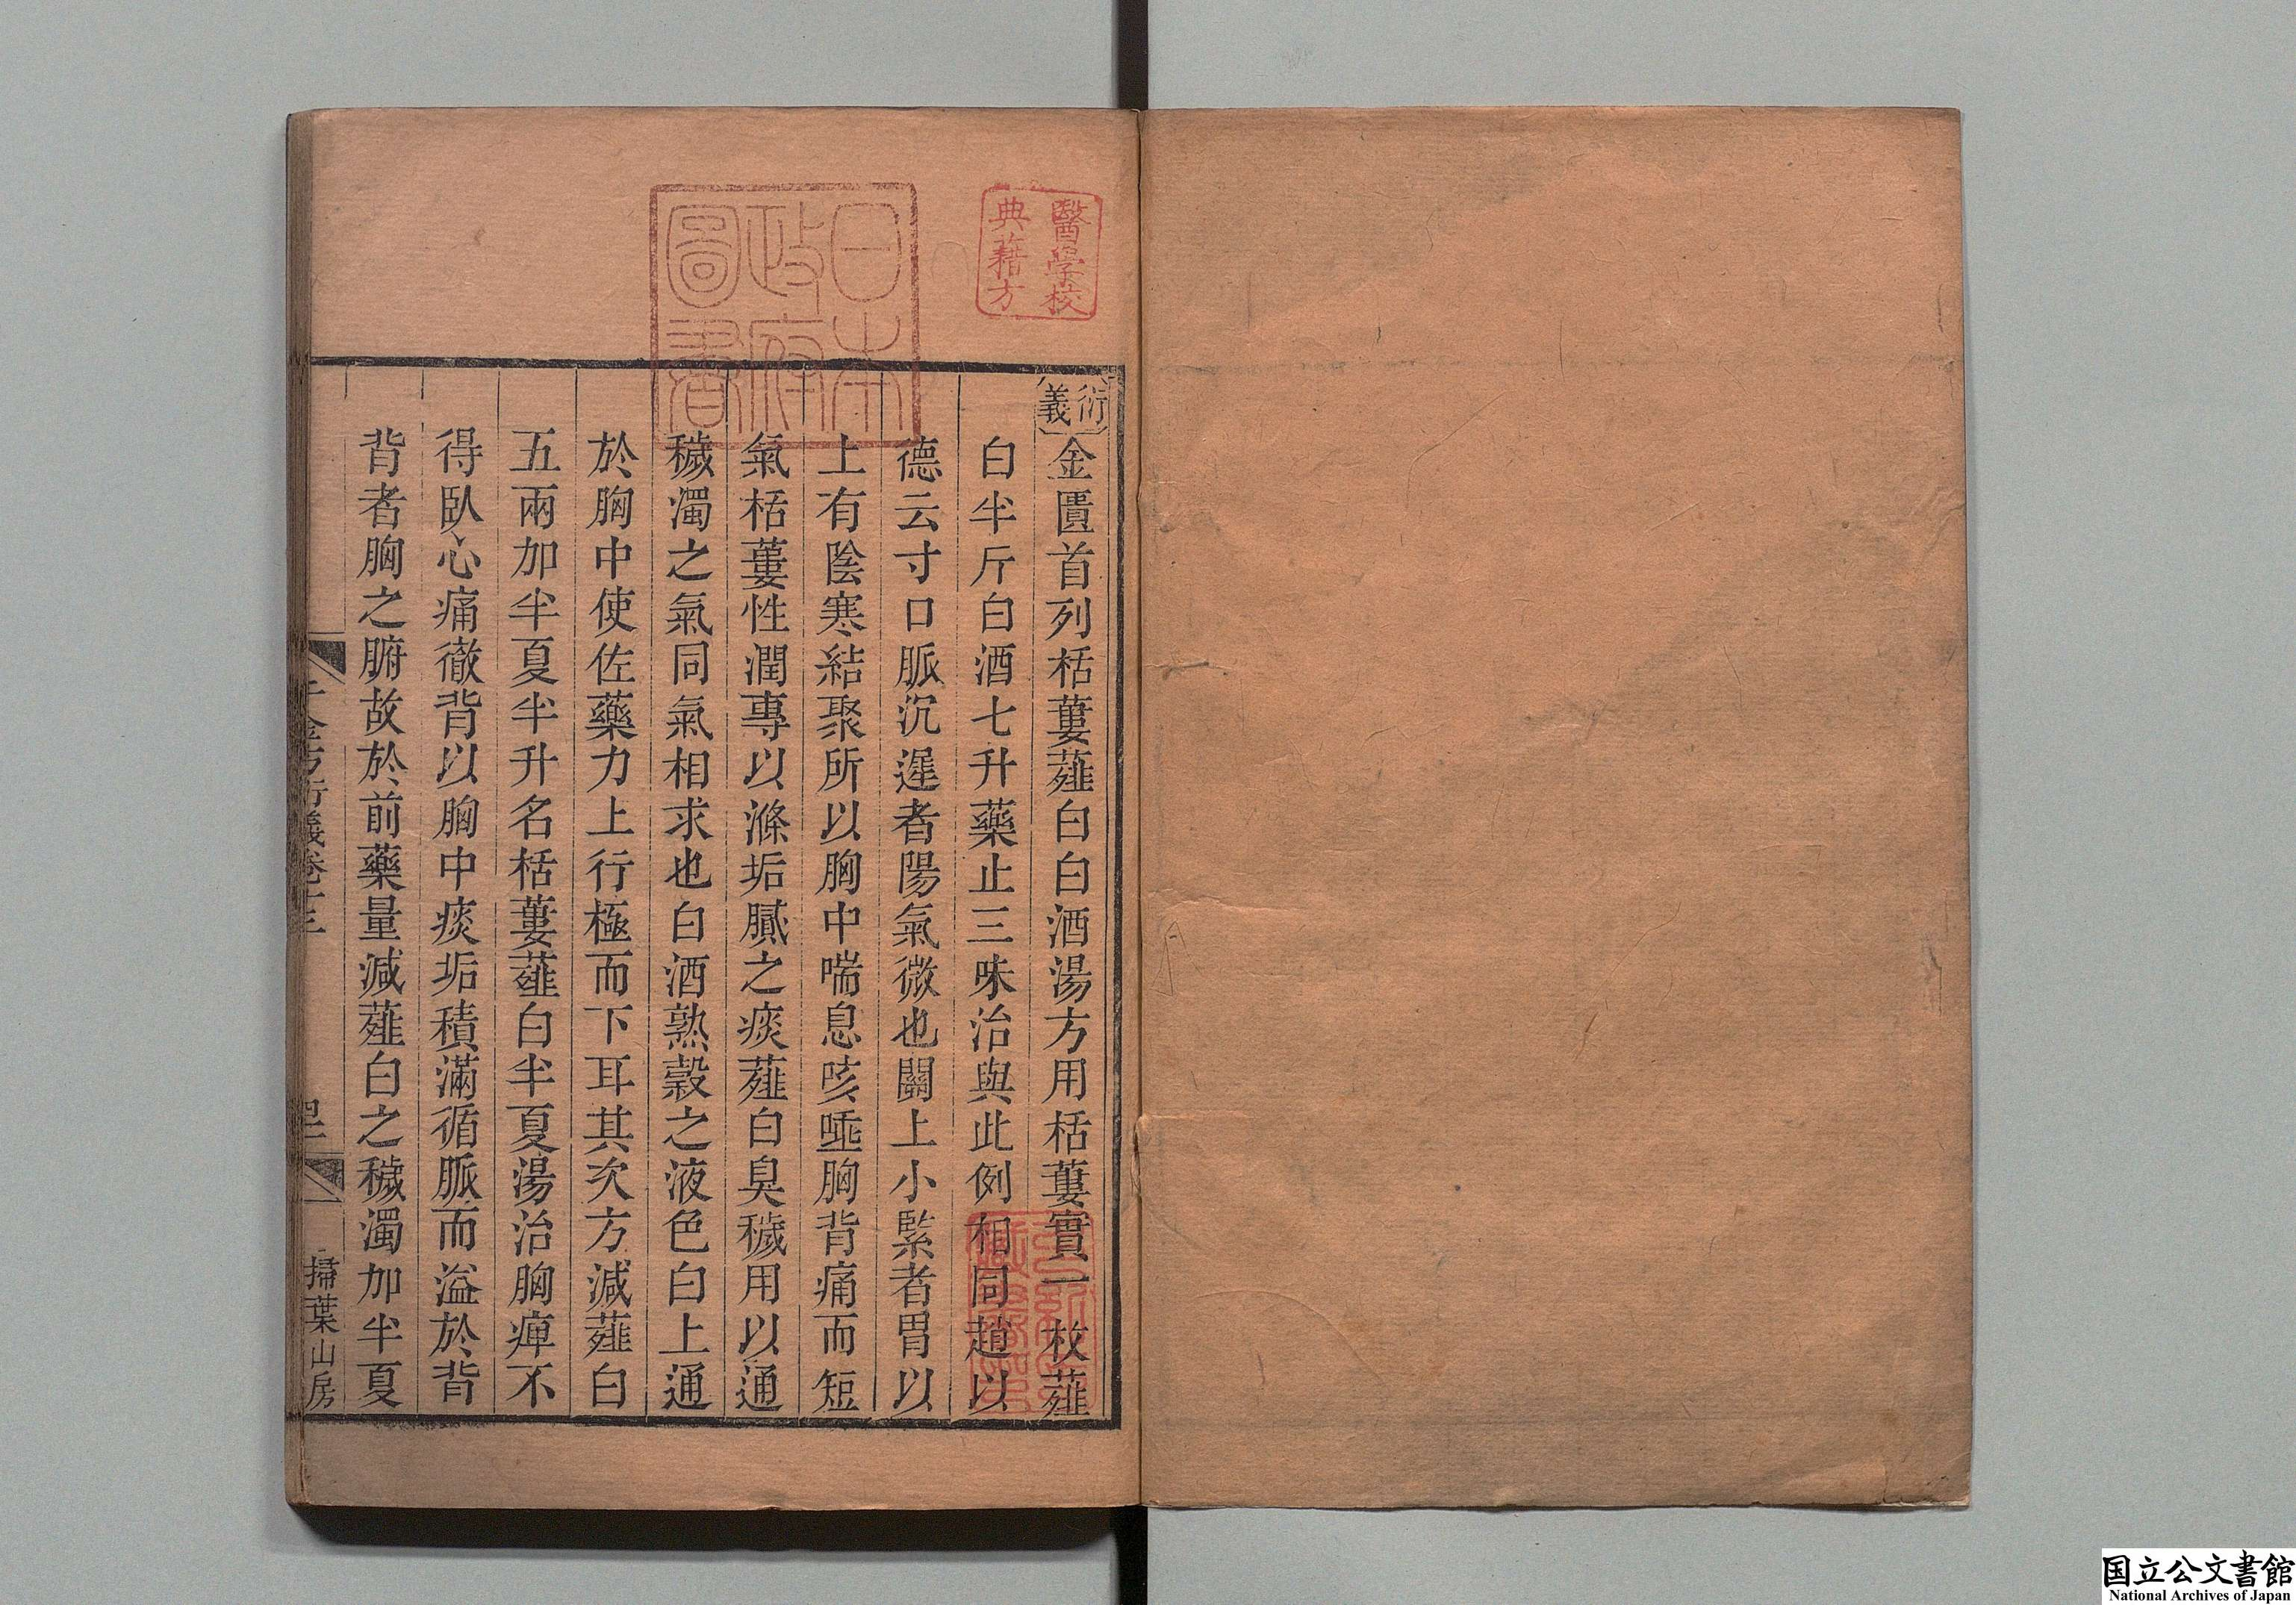 醫學校
典籍方
日本
政府
圖書
衍義
金匱首列栝蔞薤白白酒湯方用栝蔞實一枚薤
白半斤白酒七升藥止三味治與此例相同趙以
德云寸口脈沉遲者陽氣微也關上小緊者胃以
上有陰寒結聚所以胸中喘息咳唾胸背痛而短
氣栝蔞性潤專以滌垢膩之痰薤白臭穢用以通
穢濁之氣同氣相求也白酒熟穀之液色白上通
於胸中使佐藥力上行極而下耳其次方減薤白
五兩加半夏半升名栝蔞薤白半夏湯治胸痺不
得臥心痛徹背以胸中痰垢積滿循脈而溢於背
背者胸之腑故於前藥量減薤白之穢濁加半夏
千金方衍義卷十三
掃葉山房
国立公文書館
National Archives of Japan